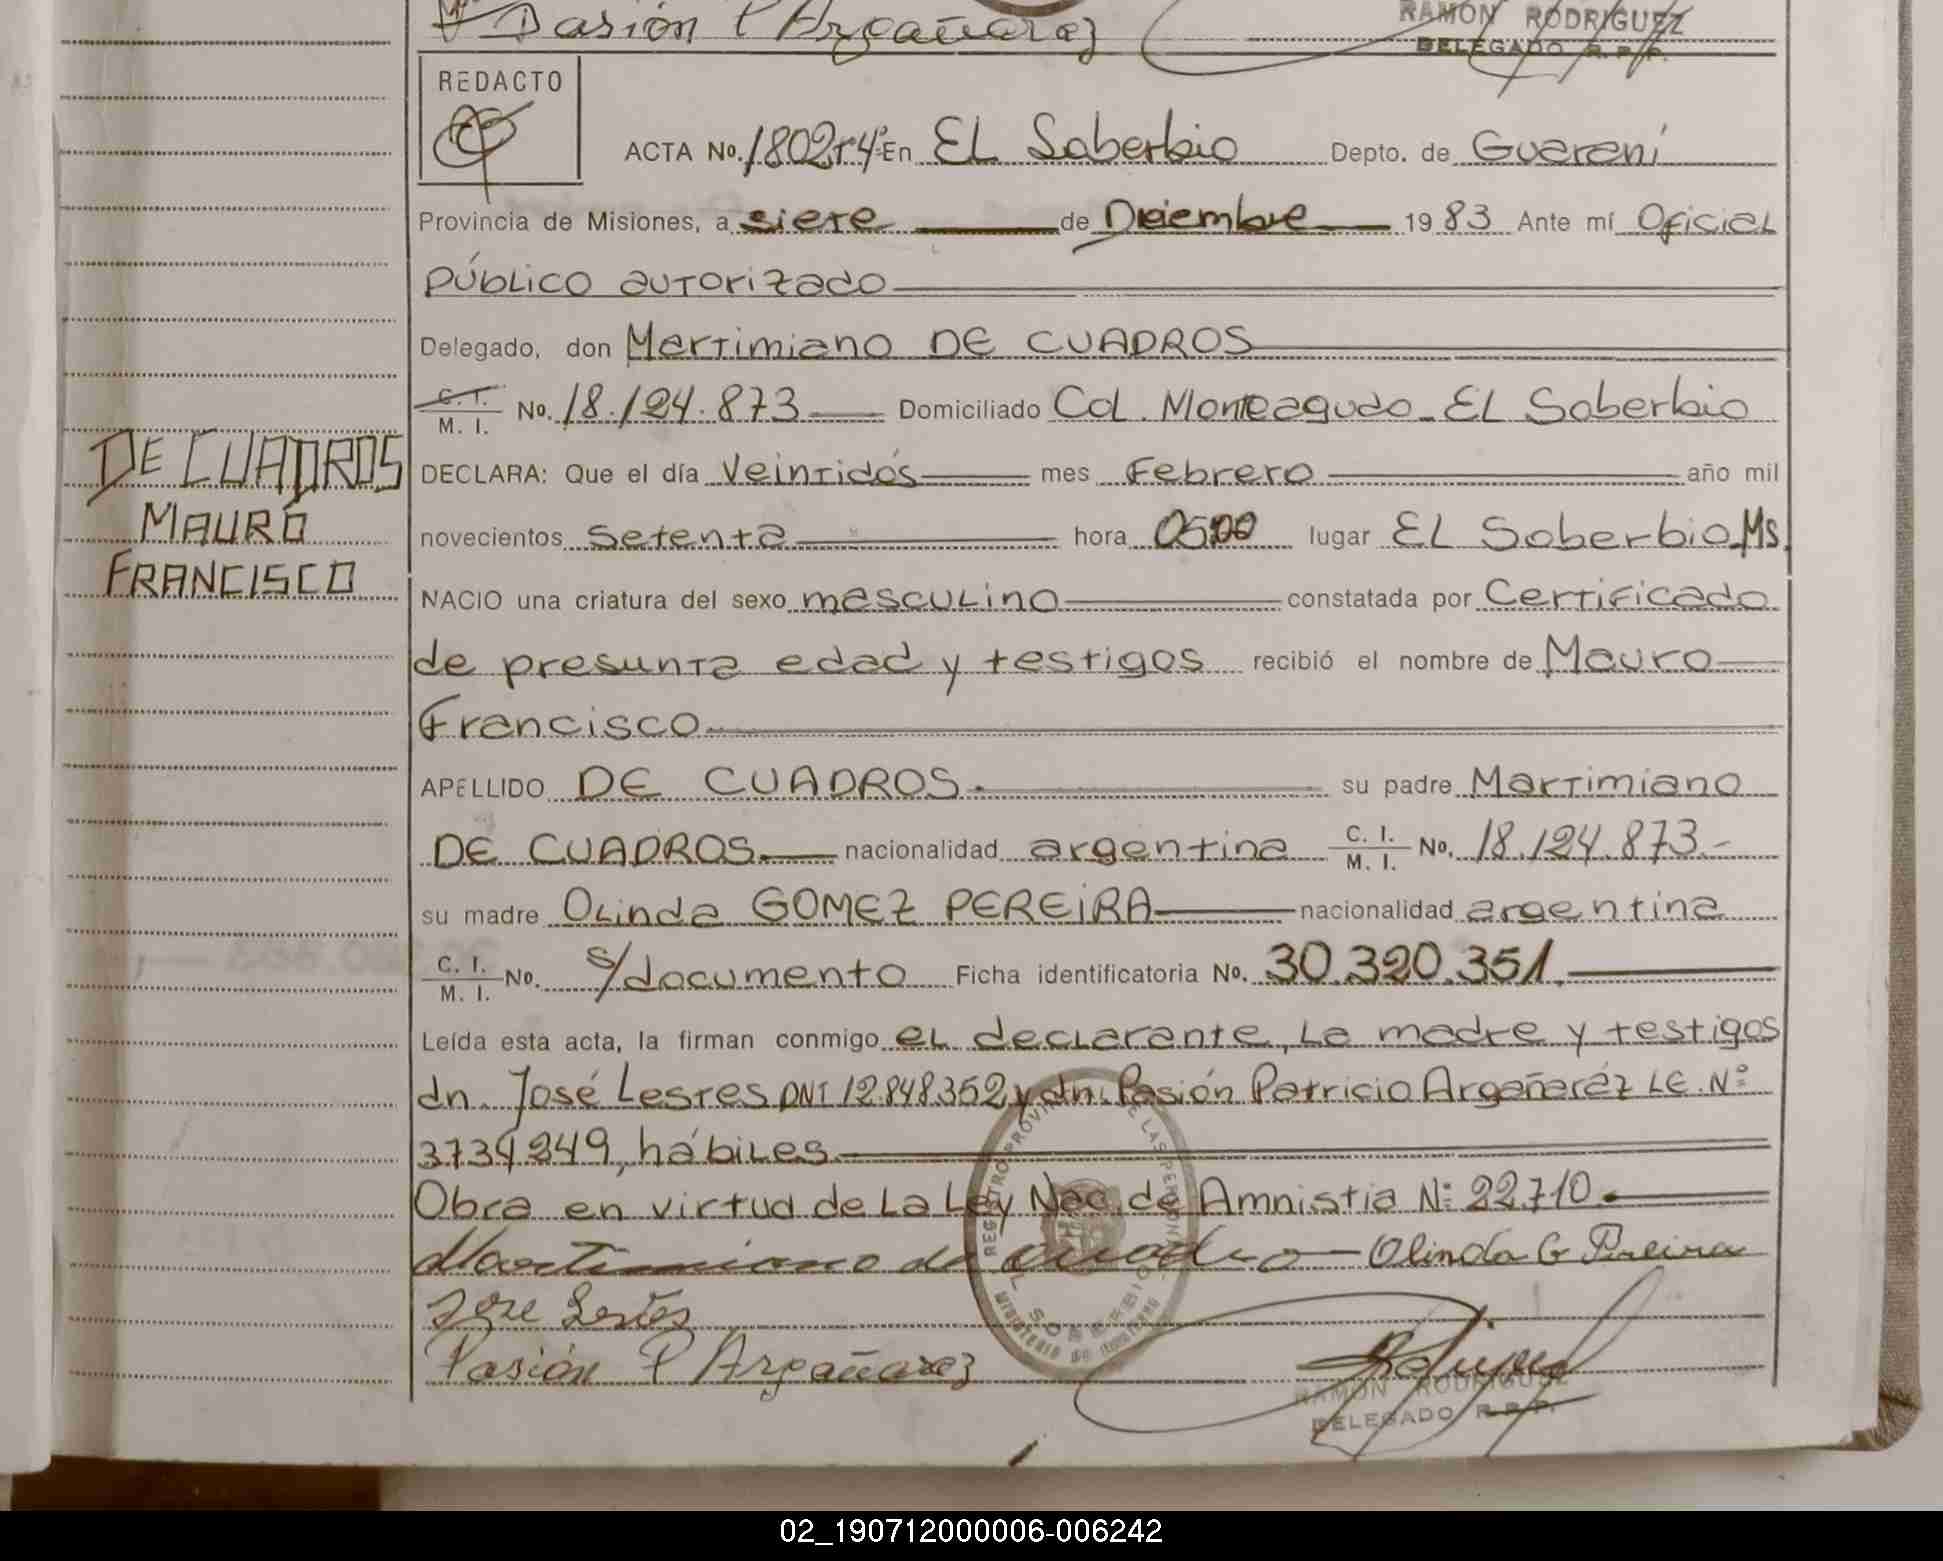 Pasión P Argañaraz
RAMON RODRIGUEZ
DELEGADO R.P.P.
REDACTO
ACTA No. 1802 T4º En EL Soberbio Depto. de Guarani
Provincia de Misiones, a siete de Diciembre 1983 Ante mí Oficial
PÚBLICO autorizado
Delegado, don Martimiano DE CUADROS
C. I. / M. I. No. 18.124.873 Domiciliado Col. Monteagudo - EL Soberbio
DECLARA: Que el día Veintidós mes Febrero año mil
novecientos Setenta hora 05:00 lugar EL Soberbio Ms.
NACIO una criatura del sexo masculino constatada por Certificado
de presunta edad y testigos recibió el nombre de Mauro
Francisco
APELLIDO DE CUADROS.- su padre Martimiano
DE CUADROS.- nacionalidad argentina C. I. / M. I. No. 18.124.873.-
su madre Olinda GOMEZ PEREIRA nacionalidad argentina
C. I. / M. I. No. s/documento Ficha identificatoria No. 30.320.351.
Leída esta acta, la firman conmigo el declarante, La madre y testigos
dn. José Lestes DNI 12.848.352 y dn. Pasión Patricio Argañaráz LE. Nº
3734249, hábiles
Obra en virtud de La Ley Nac. de Amnistia Nº 22.710.
Martimiano de cuadro Olinda G Pereira
Jose Lestes
Pasión P Argañaraz
RAMON RODRIGUEZ
DELEGADO R.P.P.
DE CUADROS
MAURO
FRANCISCO
02_190712000006-006242